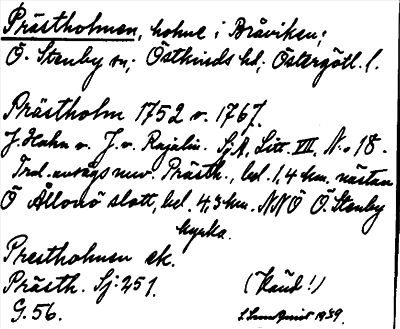 Prästholmen, holme i Bråviken;
Ö. Stenby sn; Östkinds hd; Östergötl. l.
Prästholm 1752 o. 1767.
J. Hahn o. J. v. Rajalin. SjA, Litt. VIII, N:o 18.
Trol. avsågs nuv. Prästh., bel. 1,4 km. nästan
Ö Ållonö slott, bel. 4,3 km. NNÖ Ö. Stenby
kyrka.
Prestholmen ek.
Prästh. Sj: 251. (Känd!)
G. 56. 1939.